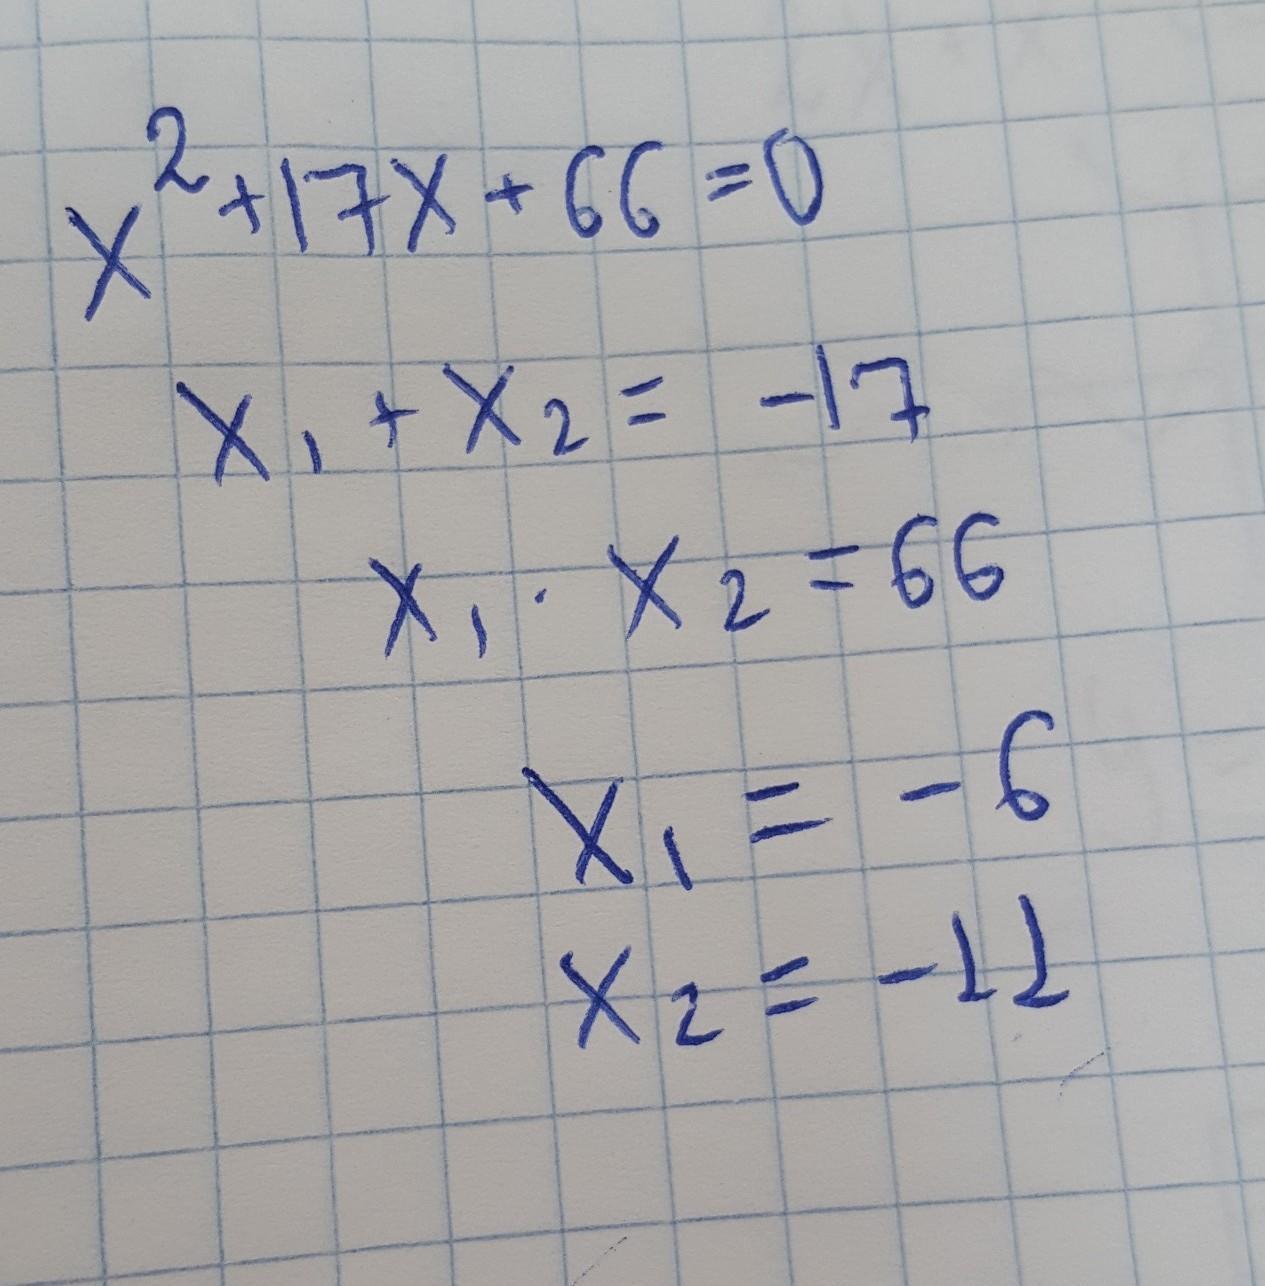 x²+17x+66=0
x₁+x₂= -17
x₁·x₂=66
x₁= -6
x₂= -11